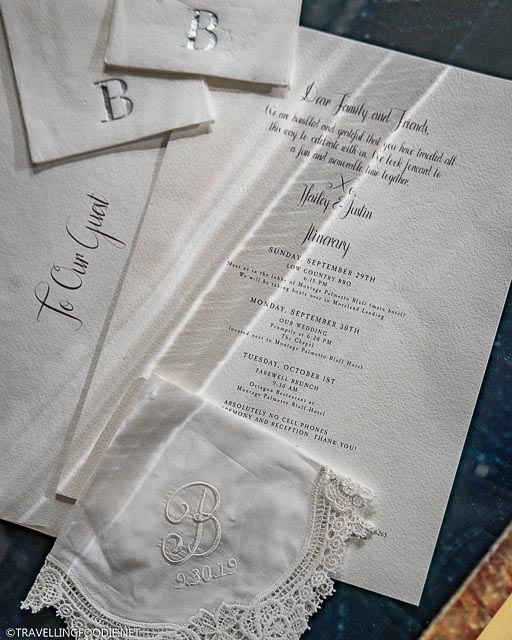 B
B
To Our Guest
Dear Family and Friends,
We are humbled and grateful that you have traveled all
this way to celebrate with us. We look forward to
a fun and memorable time together.
Xo,
Hailey & Justin
Itinerary
SUNDAY, SEPTEMBER 29TH
LOW COUNTRY BBQ
6:15 PM
Meet us in the lobby of Montage Palmetto Bluff (main hotel)
We will be taking boats over to Moreland Landing
MONDAY, SEPTEMBER 30TH
OUR WEDDING
Promptly at 6:30 PM
The Chapel
located next to Montage Palmetto Bluff Hotel
TUESDAY, OCTOBER 1ST
FAREWELL BRUNCH
9:30 AM
Octagon Restaurant at
Montage Palmetto Bluff Hotel
ABSOLUTELY NO CELL PHONES
EMONY AND RECEPTION, THANK YOU!
B
9.30.19
©TRAVELLINGFOODIE.NET